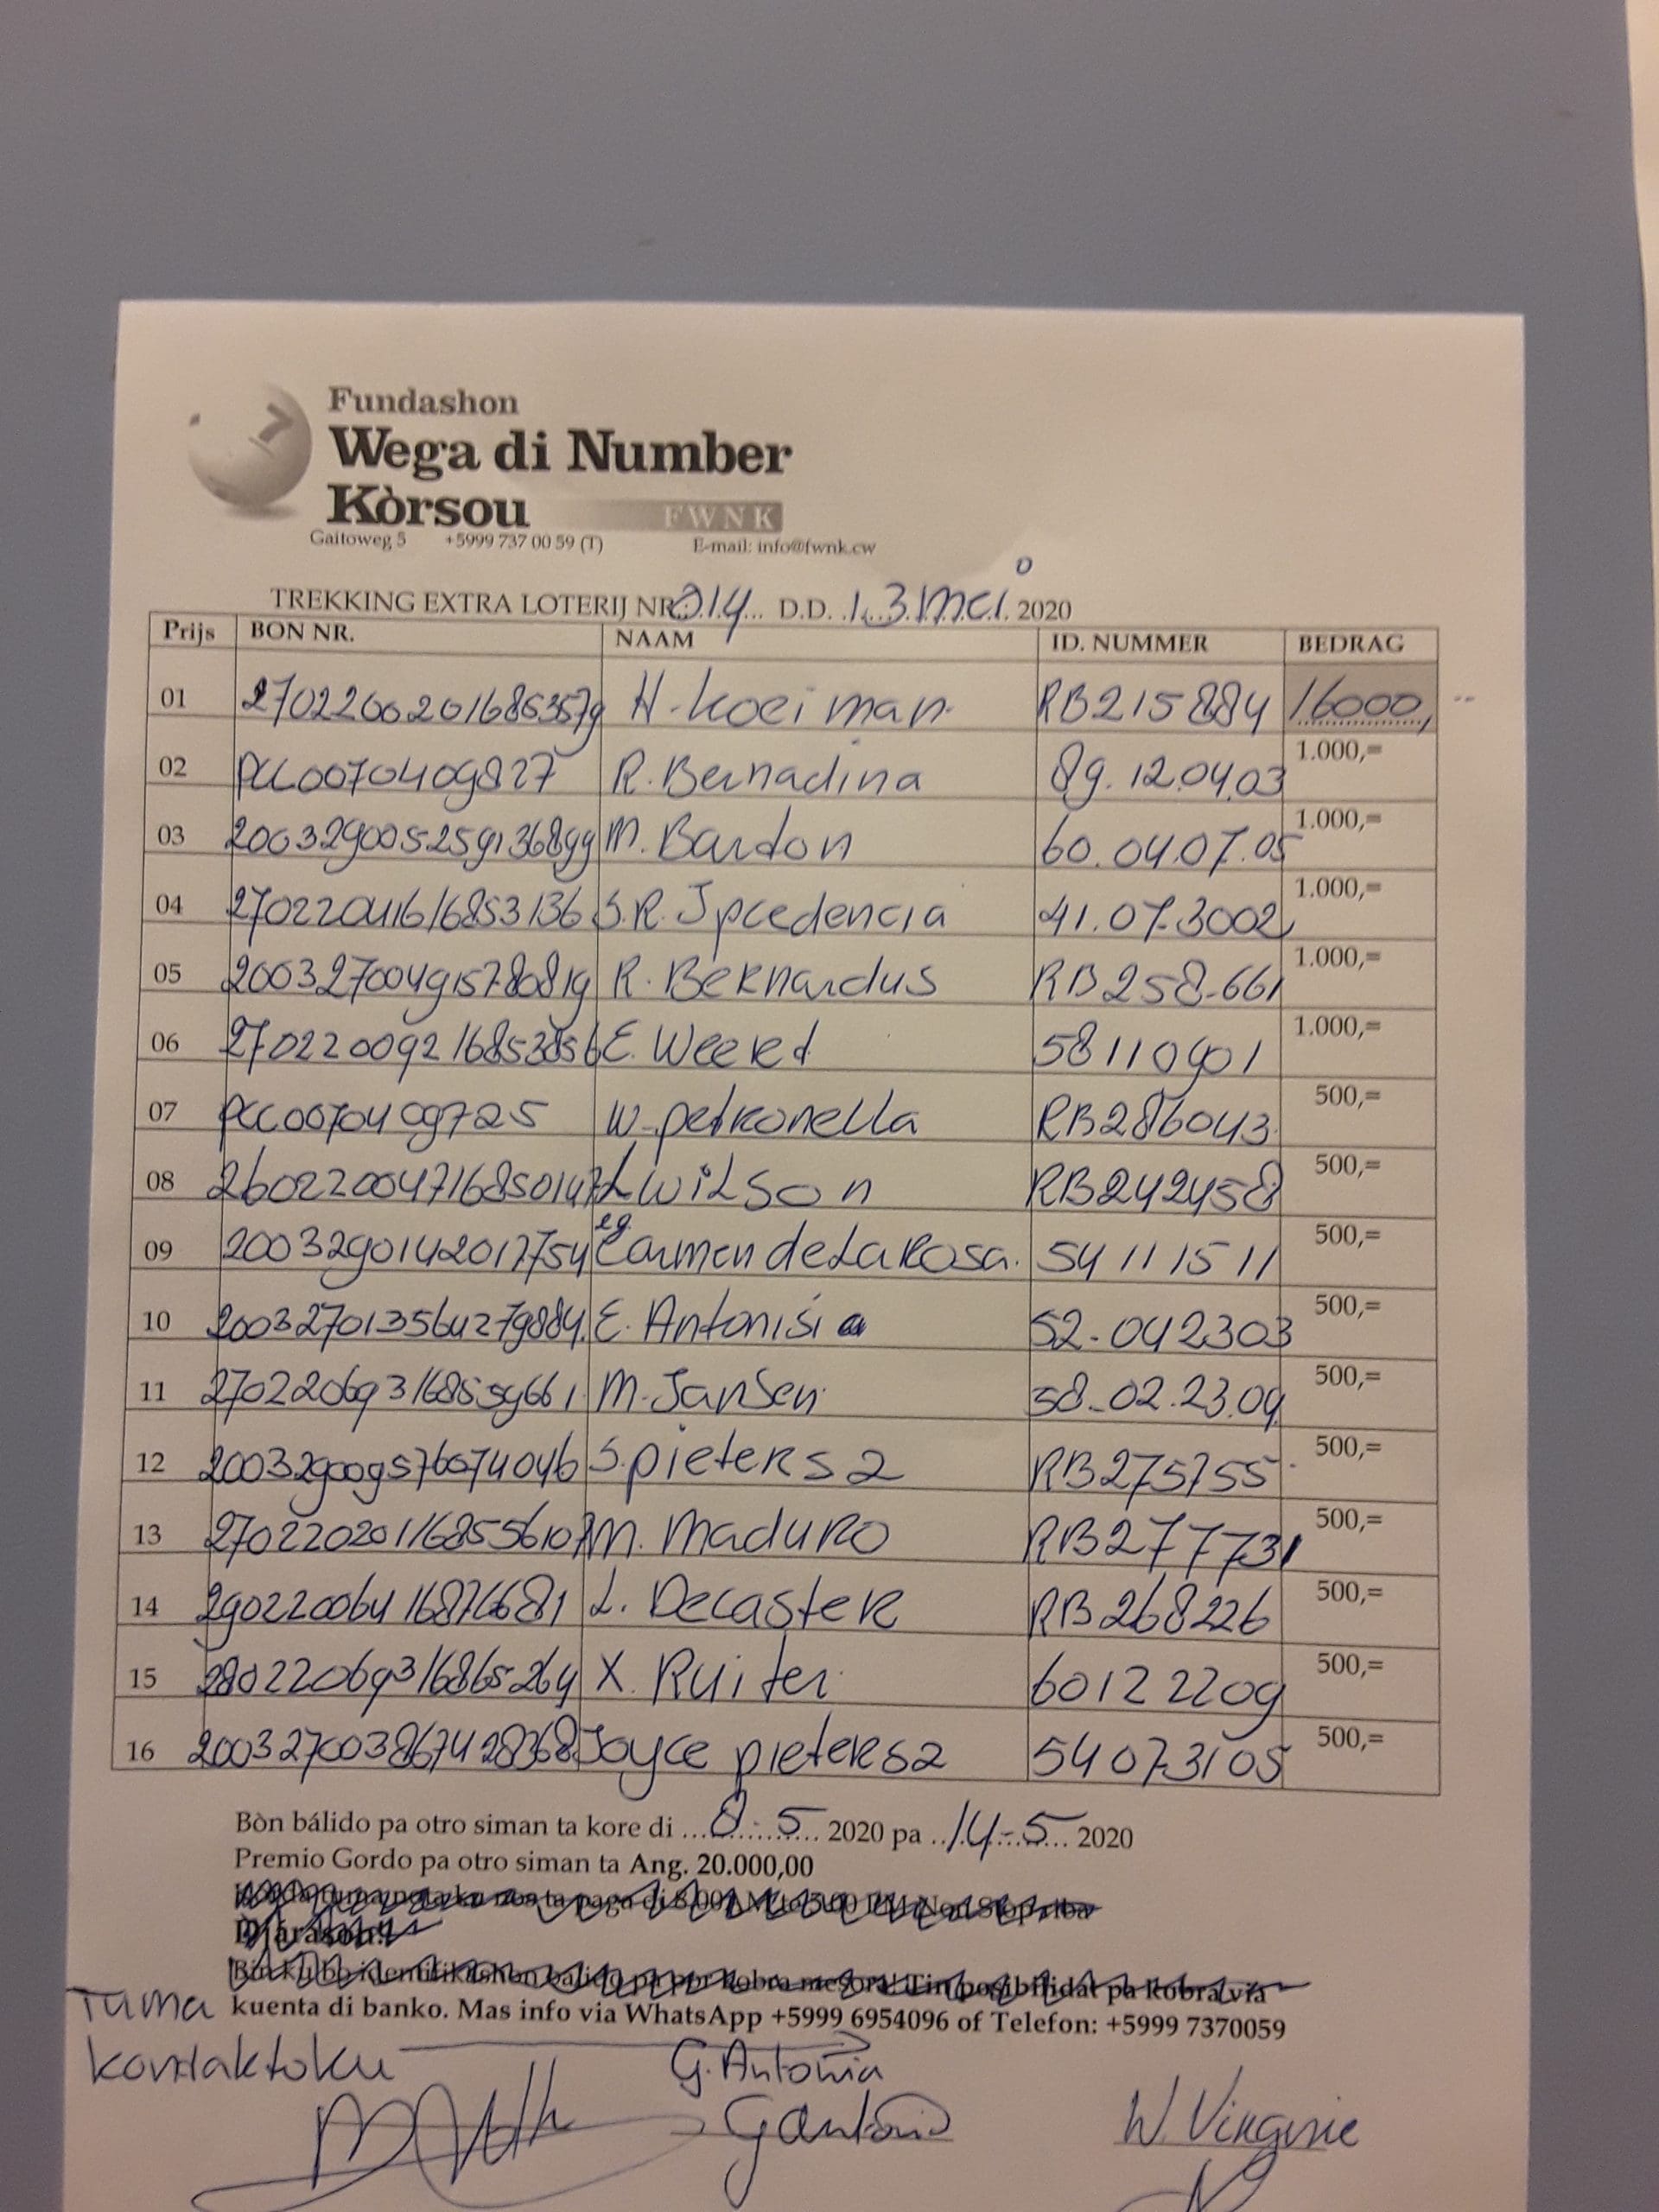 Fundashon
Wega di Number
Kòrsou FWNK
Gaitoweg 5 +5999 737 00 59 (T) E-mail: info@fwnk.cw
TREKKING EXTRA LOTERIJ NR. 014 D.D. 13 mei 2020
Prijs BON NR. NAAM ID. NUMMER BEDRAG
01 H. Koeiman RB215884 16000,--
02 PCC0070409827 R. Bernadina 89.12.04.03 1.000,=
03 200329005259136899 M. Barton 60.04.07.05 1.000,=
04 S.R. 41.07.3002 1.000,=
05 200327004915780819 R. Bernardus RB258-661 1.000,=
06 E. Weert 58110901 1.000,=
07 PCC0070409725 W. petronella RB286043 500,=
08 L wilson RB242458 500,=
09 2003290142017754 Carmen de La Rosa. 54111511 500,=
10 200327013564279884 E. Antonisia 52-042303 500,=
11 M. Jansen 58-02.23.09 500,=
12 200329009576074046 S. pietersz RB275755 500,=
13 M. maduro RB277731 500,=
14 L. Decaster RB268226 500,=
15 28022069316865264 X. Ruiter 60122209 500,=
16 200327003867428368 Joyce pietersz 54073105 500,=
Bòn bálido pa otro siman ta kore di 8-5 2020 pa 14-5 2020
Premio Gordo pa otro siman ta Ang. 20.000,00
Tuma kuenta di banko. Mas info via WhatsApp +5999 6954096 of Telefon: +5999 7370059
kontakto ku
G. Antonia
W. Virginie